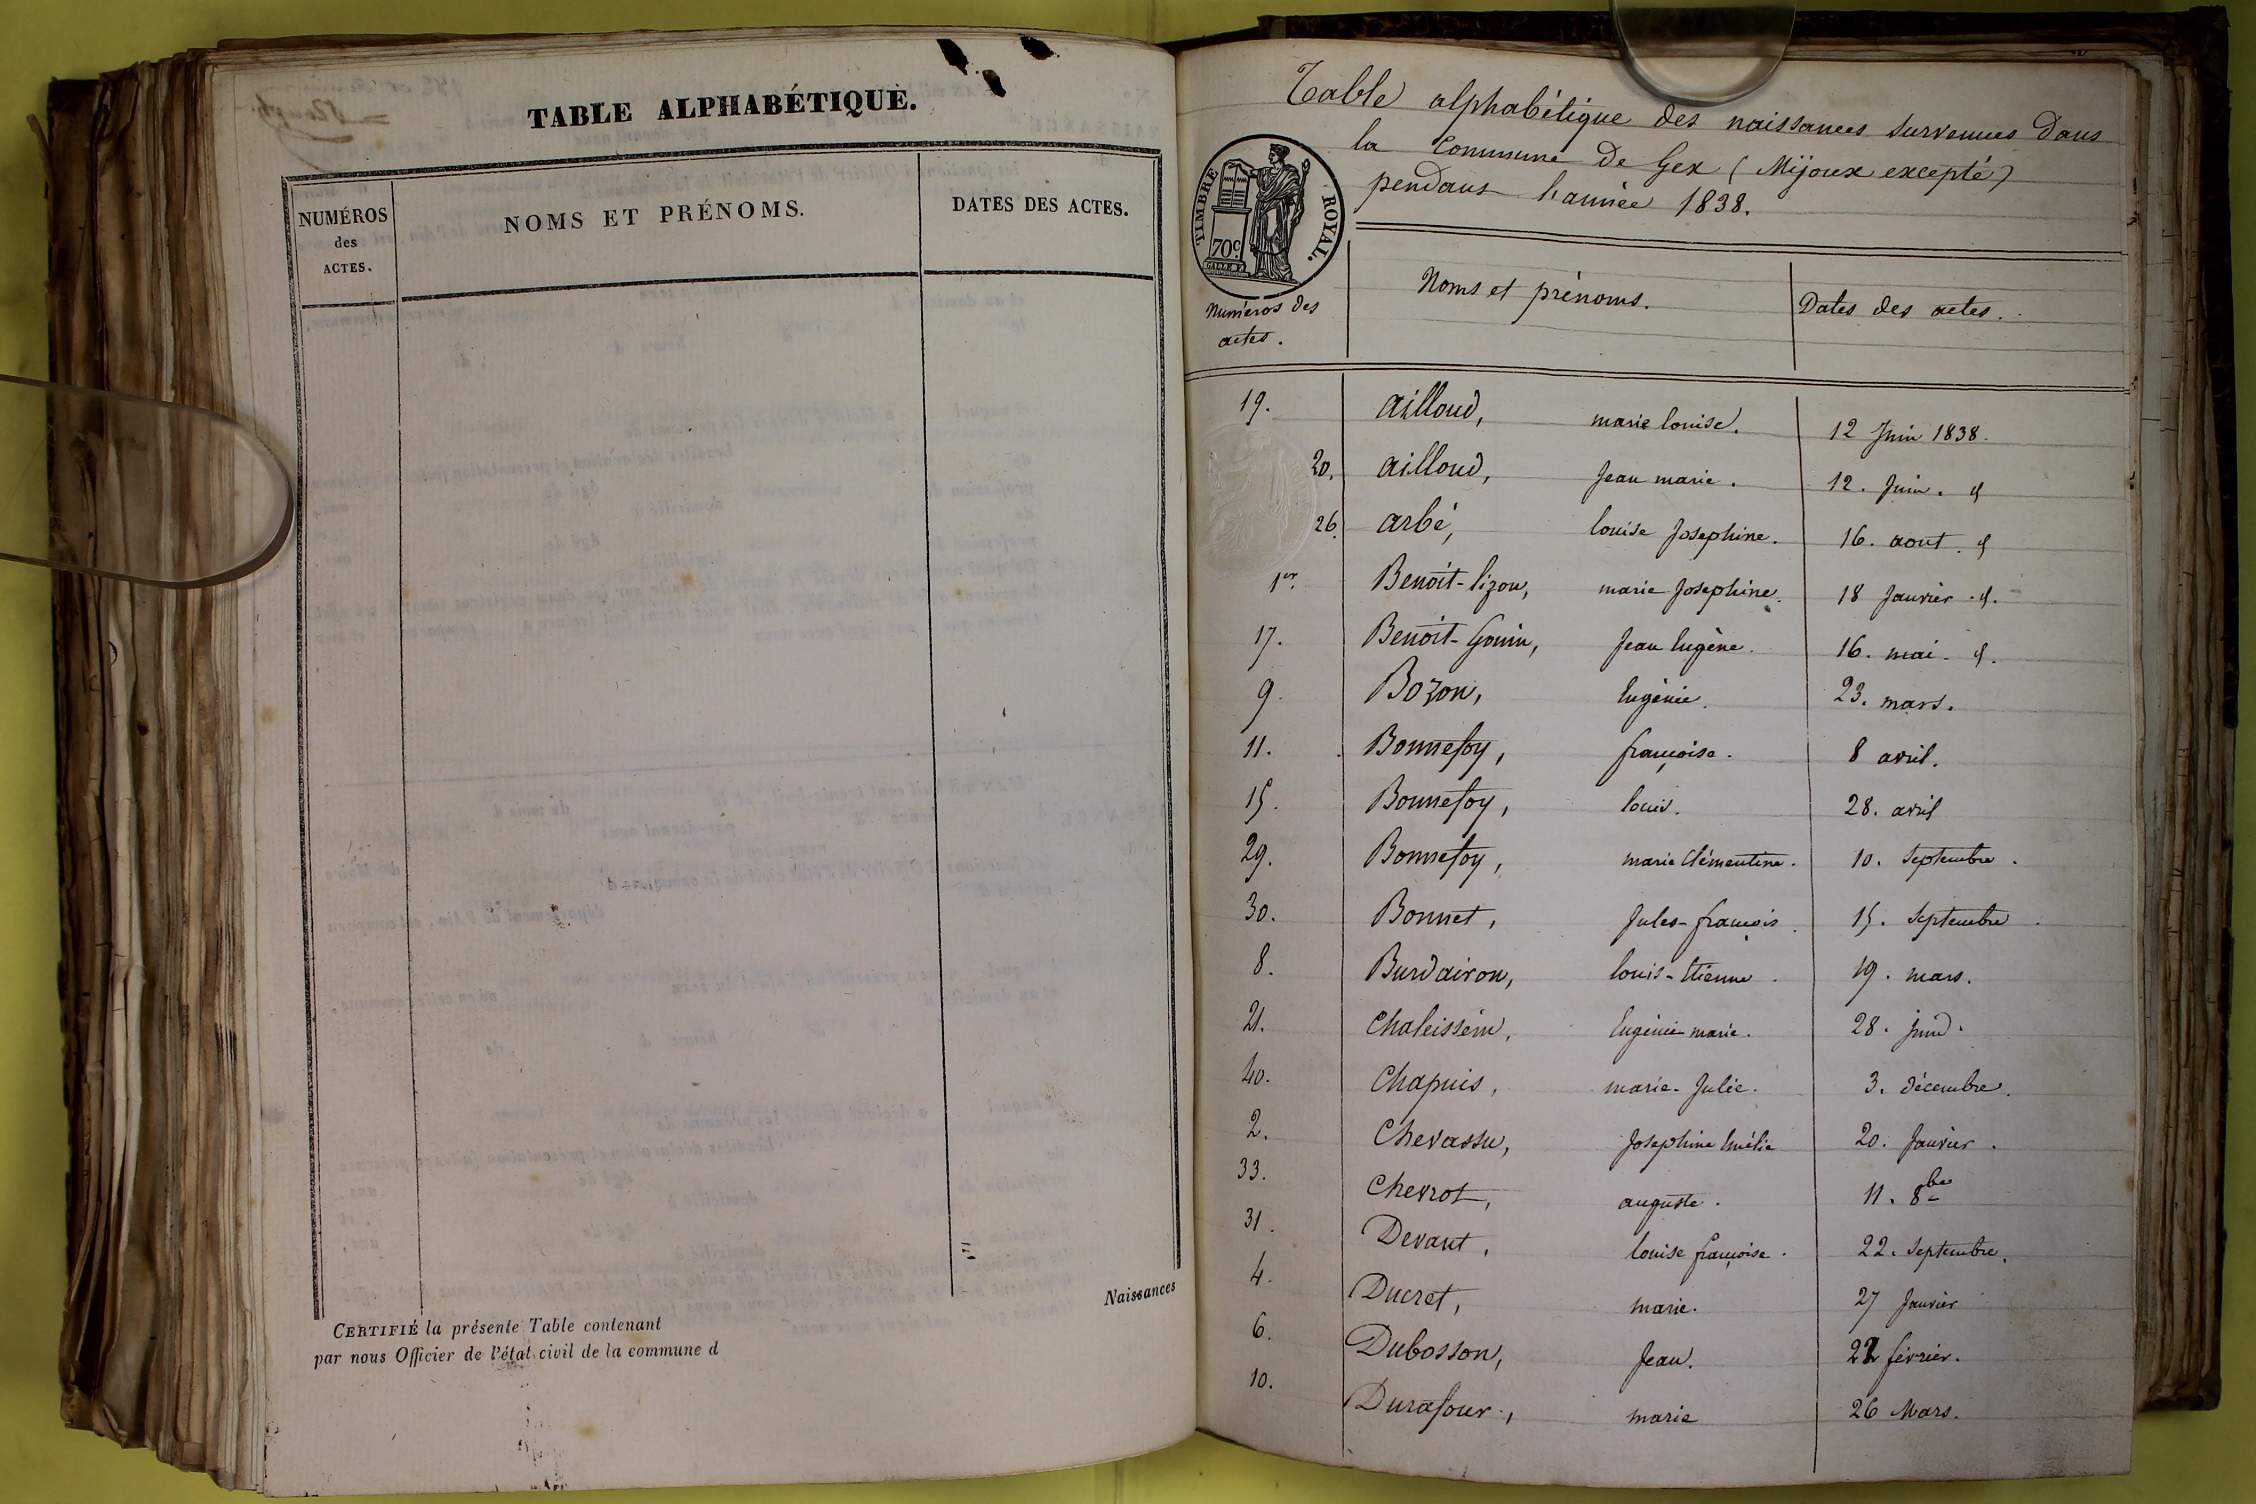 TABLE ALPHABÉTIQUE.
NUMÉROS
des
ACTES.
NOMS ET PRÉNOMS.
DATES DES ACTES.
Naissances
CERTIFIÉ la présente Table contenant
par nous Officier de l'état civil de la commune d
Table alphabétique des naissances survenues Dans
la Commune De Gex (Mijoux excepté)
pendant l'année 1838.
TIMBRE ROYAL.
70c.
Numéros des
actes.
Noms et prénoms.
Dates des actes.
19. ailloud, marie louise. 12 Juin 1838.
20. ailloud, Jean marie. 12. Juin.
26. arbé, louise Josephine. 16. aout.
1er. Benoit-lizon, marie Josephine. 18 Janvier.
17. Benoit-Gonin, Jean Eugène. 16. mai.
9. Bozon, Eugénie. 23. mars.
11. Bonnefoy, françoise. 8 avril.
15. Bonnefoy, louis. 28. avril
29. Bonnefoy, marie Clémentine. 10. Septembre.
30. Bonnet, Jules-françois. 15. Septembre
8. Burdairon, louis-Etienne 19. mars.
21. Chaleissin, Eugénie marie. 28. juin.
40. Chapuis, marie-Julie. 3. décembre.
2. Chevassu, Josephine Emélie 20. Janvier.
33. Chevrot, auguste. 11. 8bre
31. Devant, louise françoise. 22. Septembre.
4. Ducret, marie. 27 Janvier
6. Dubosson, Jean. 22 février.
10. Durafour, marie 26 Mars.